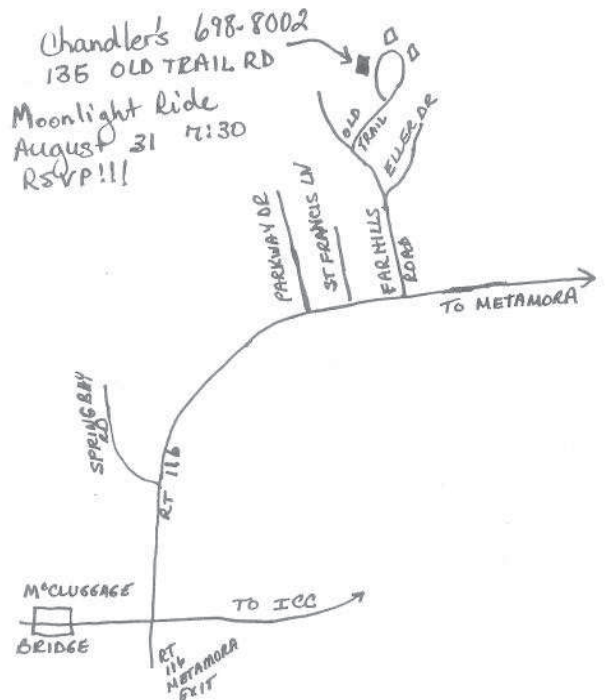 Chandler's 698-8002
135 OLD TRAIL RD
Moonlight Ride
August 31 7:30
RSVP!!!
OLD
TRAIL
ELLER DR
PARKWAY DR
ST FRANCIS LN
FARHILLS
ROAD
TO METAMORA
SPRING BAY
RD
RT 116
McCLUGGAGE
BRIDGE
TO ICC
RT
116
METAMORA
EXIT